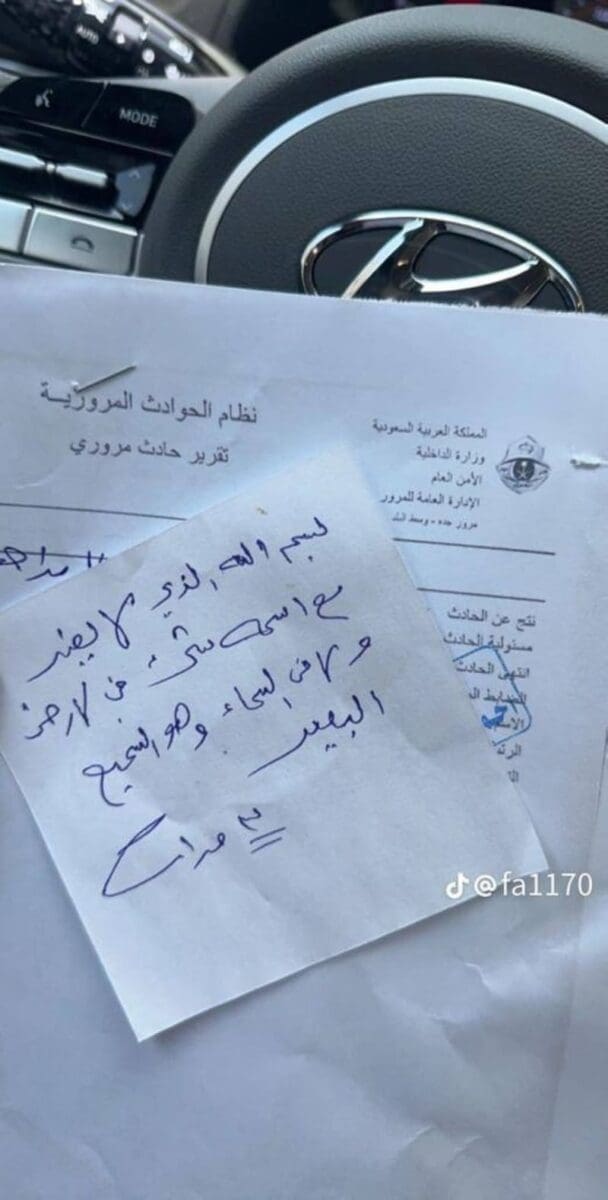 MODE
نظام الحوادث المرورية
تقرير حادث مروري
المملكة العربية السعودية
وزارة الداخلية
الأمن العام
الإدارة العامة للمرور
مرور جده - وسط البلد
نتج عن الحادث
مسئولية الحادث
انتهى الحادث
الضابط
الاسم
بسم الله الذي لا يضر
مع اسمه شيء في لارض
ولا في السماء وهو السميع
البصير
٣ مرات
@fa1170